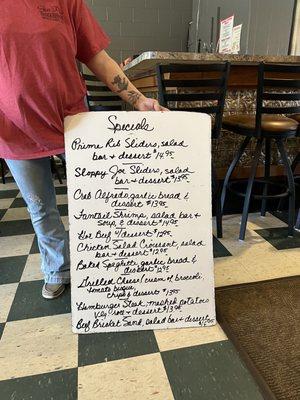 Specials
Prime Rib Sliders, salad
bar + dessert $14.95
Sloppy Joe Sliders, salad
bar + dessert
Crab Alfredo, garlic bread &
dessert
Fantail Shrimp, salad bar &
Soup, & dessert
Hot Beef w/ dessert
Chicken Salad Croissant, salad
bar & dessert
Baked Spaghetti, garlic bread &
dessert
Grilled Cheese/ cream of broccoli
tomato bisque,
chips & dessert
Hamburger Steak, mashed potatoes
veg, roll + dessert
Beef Brisket Sand, salad bar + dessert